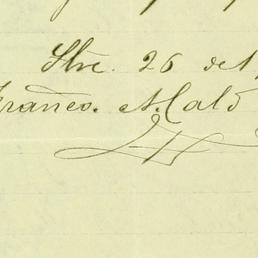 Stre. 26 de
Franco. A. Cald